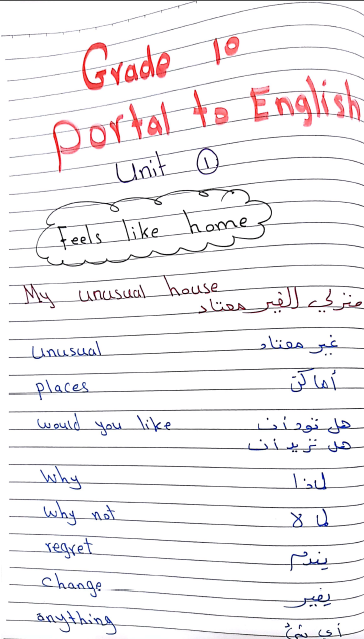 Grade 10
Portal to English
Unit 1
Feels like home
My unusual house
منزلي الغير معتاد
unusual غير معتاد
places أماكن
would you like هل تود أن
هل تريد أن
Why لماذا
why not لما لا
regret يندم
change يغير
anything أي شئ